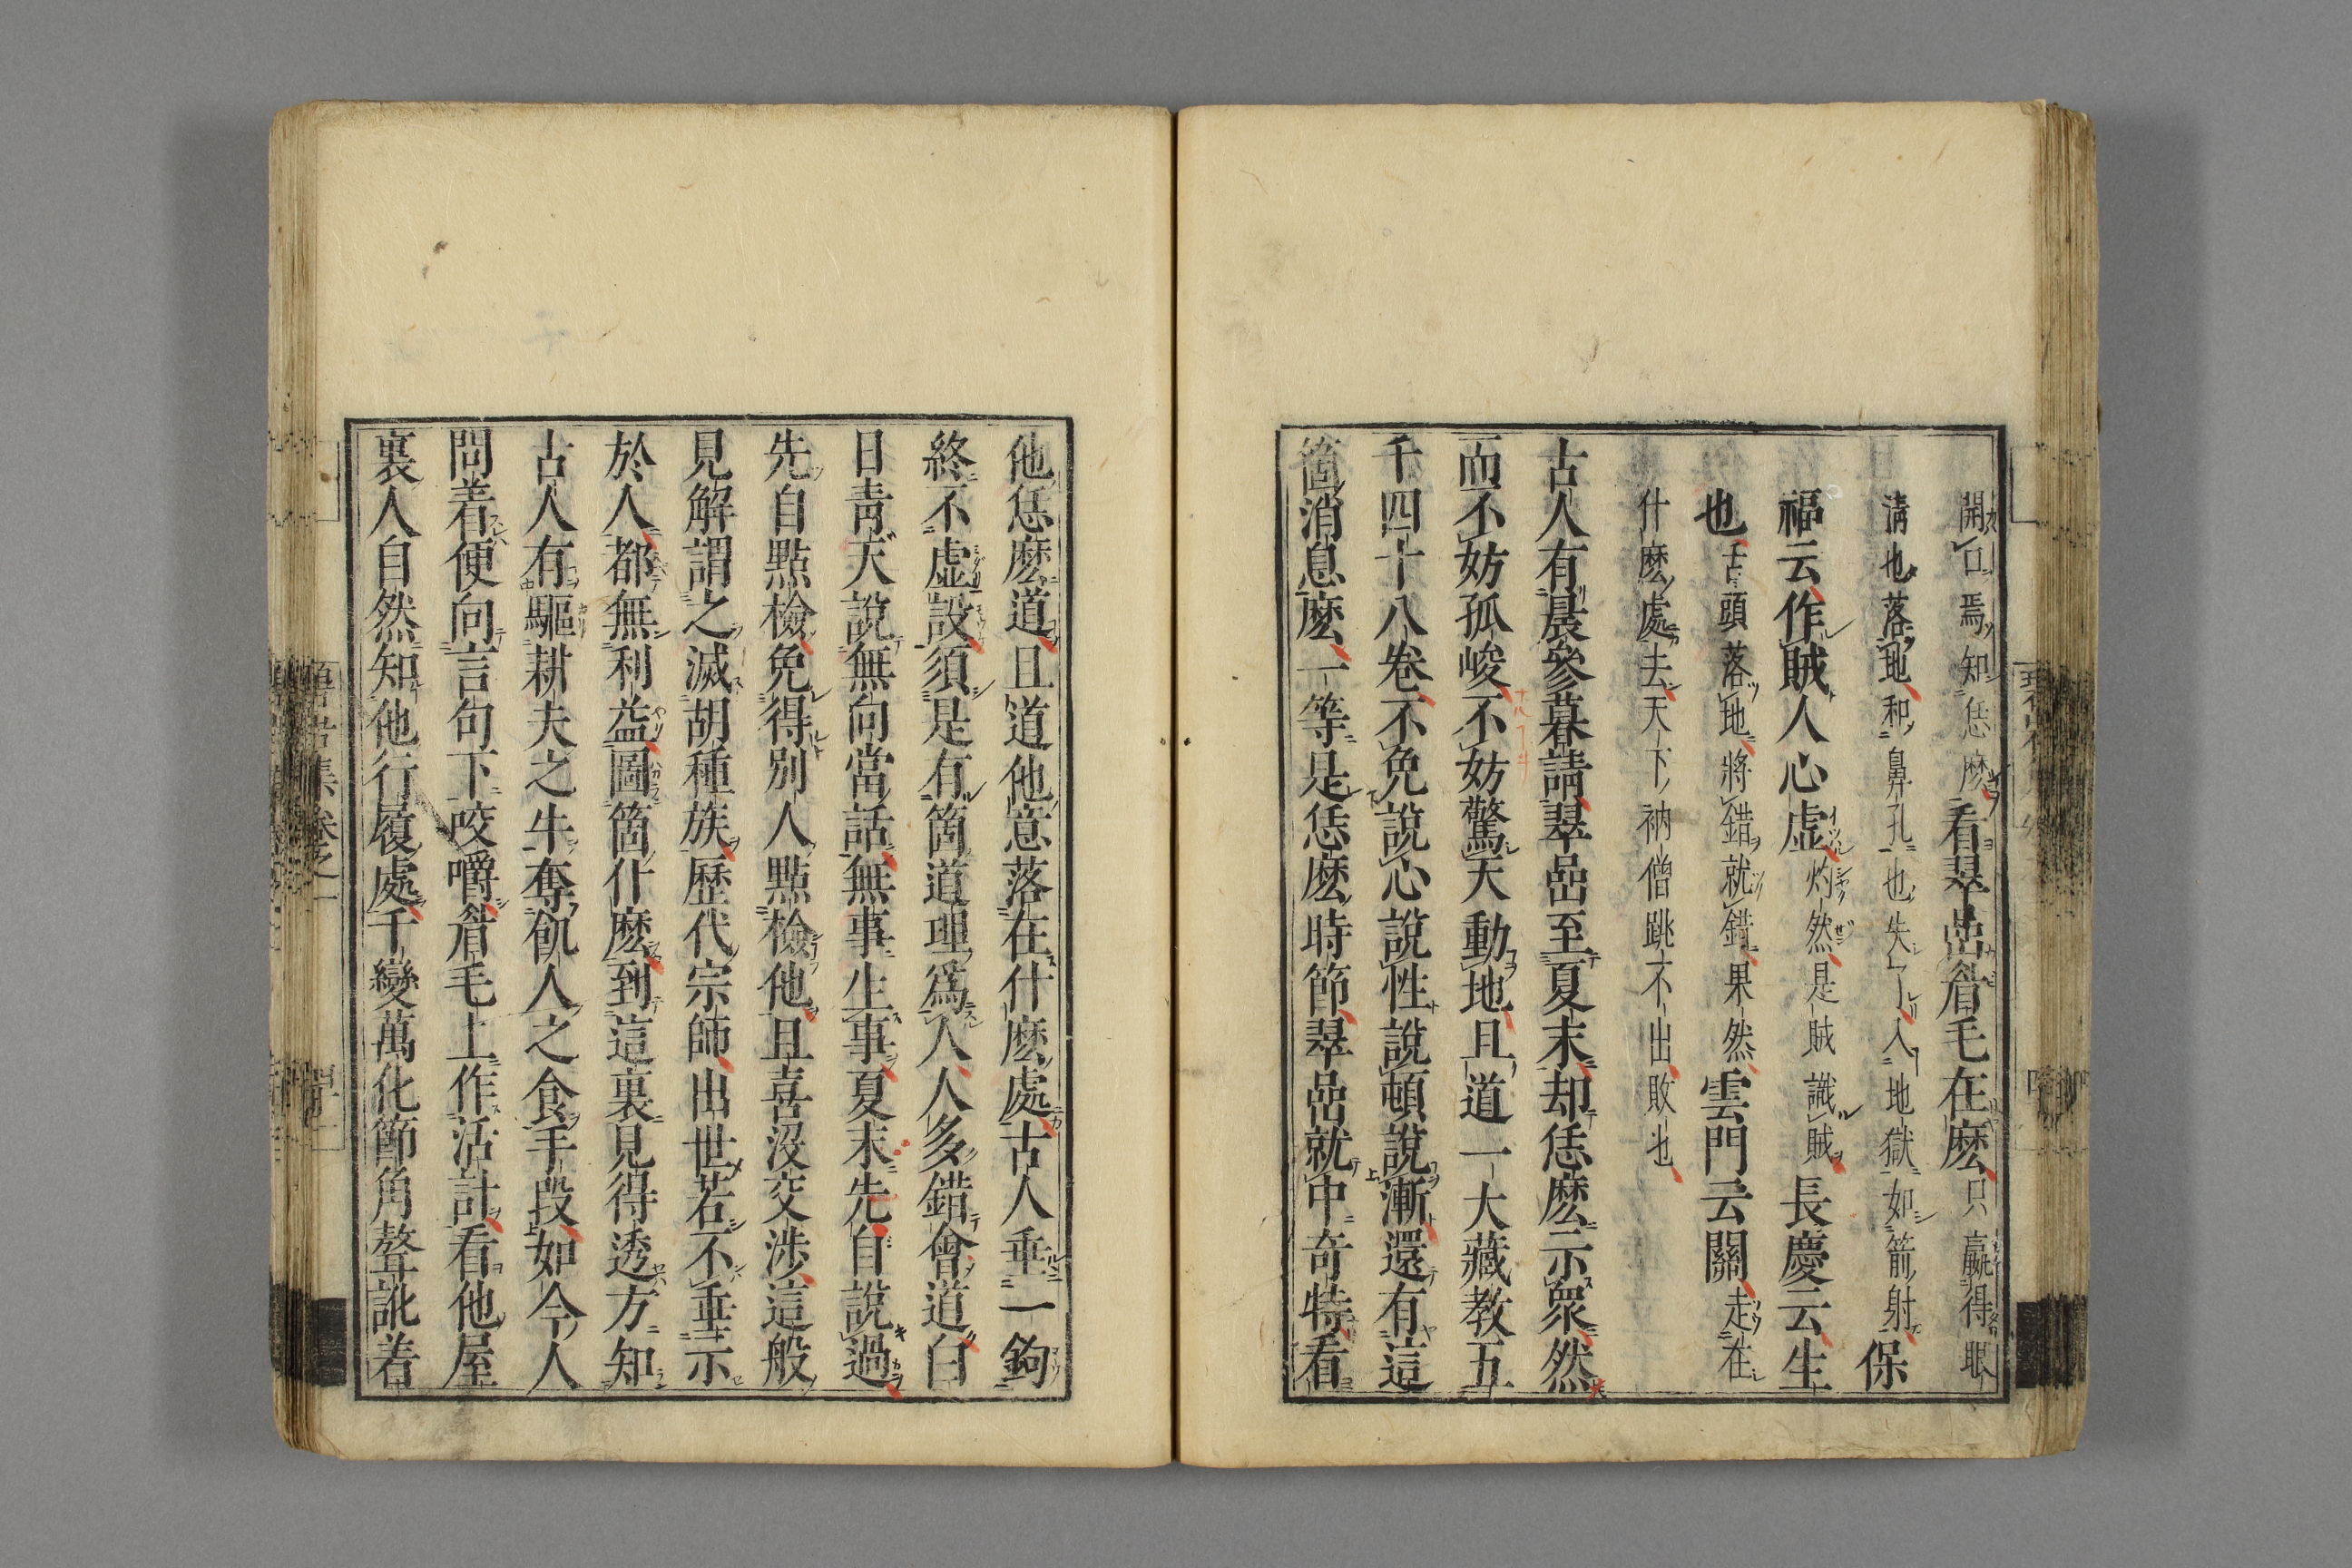 開口焉知恁麽看翠嵓眉毛在麽只贏得眼
淸也落地和鼻孔也失了入地獄如箭射保
福云作賊人心虛灼然是賊識賊長慶云生
也舌頭落地將錯就錯果然雲門云關走在
什麽處去天下衲僧跳不出敗也
古人有晨參暮請翠嵓至夏末却恁麽示衆然
而不妨孤峻不妨驚天動地且道一大藏敎五
千四十八卷不免說心說性說頓說漸還有這
箇消息麽一等是恁麽時節翠嵓就中奇特看
他恁麽道且道他意落在什麽處古人垂一鉤
終不虛設須是有箇道理爲人人多錯會道白
日靑天說無向當話無事生事夏末先自說過
先自點檢免得別人點檢他且喜沒交涉這般
見解謂之滅胡種族歷代宗師出世若不垂示
於人都無利益圖箇什麽到這裏見得透方知
古人有驅耕夫之牛奪飢人之食手段如今人
問着便向言句下咬嚼眉毛上作活計看他屋
裏人自然知他行履處千變萬化節角聱訛着